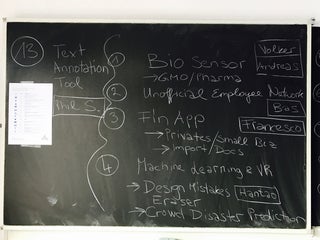 13
Text
Annotation
Tool
Phil S.
1
Bio Sensor
→GMO/Pharma
Volker
Andreas
2
Unofficial Employee Network
BoS
3
FIn App
Francesco
→Privates/Small Biz
→Import/Docs
4
Machine Learning & VR
→Design Mistakes
Eraser
Hantao
→Crowd Disaster Prediction